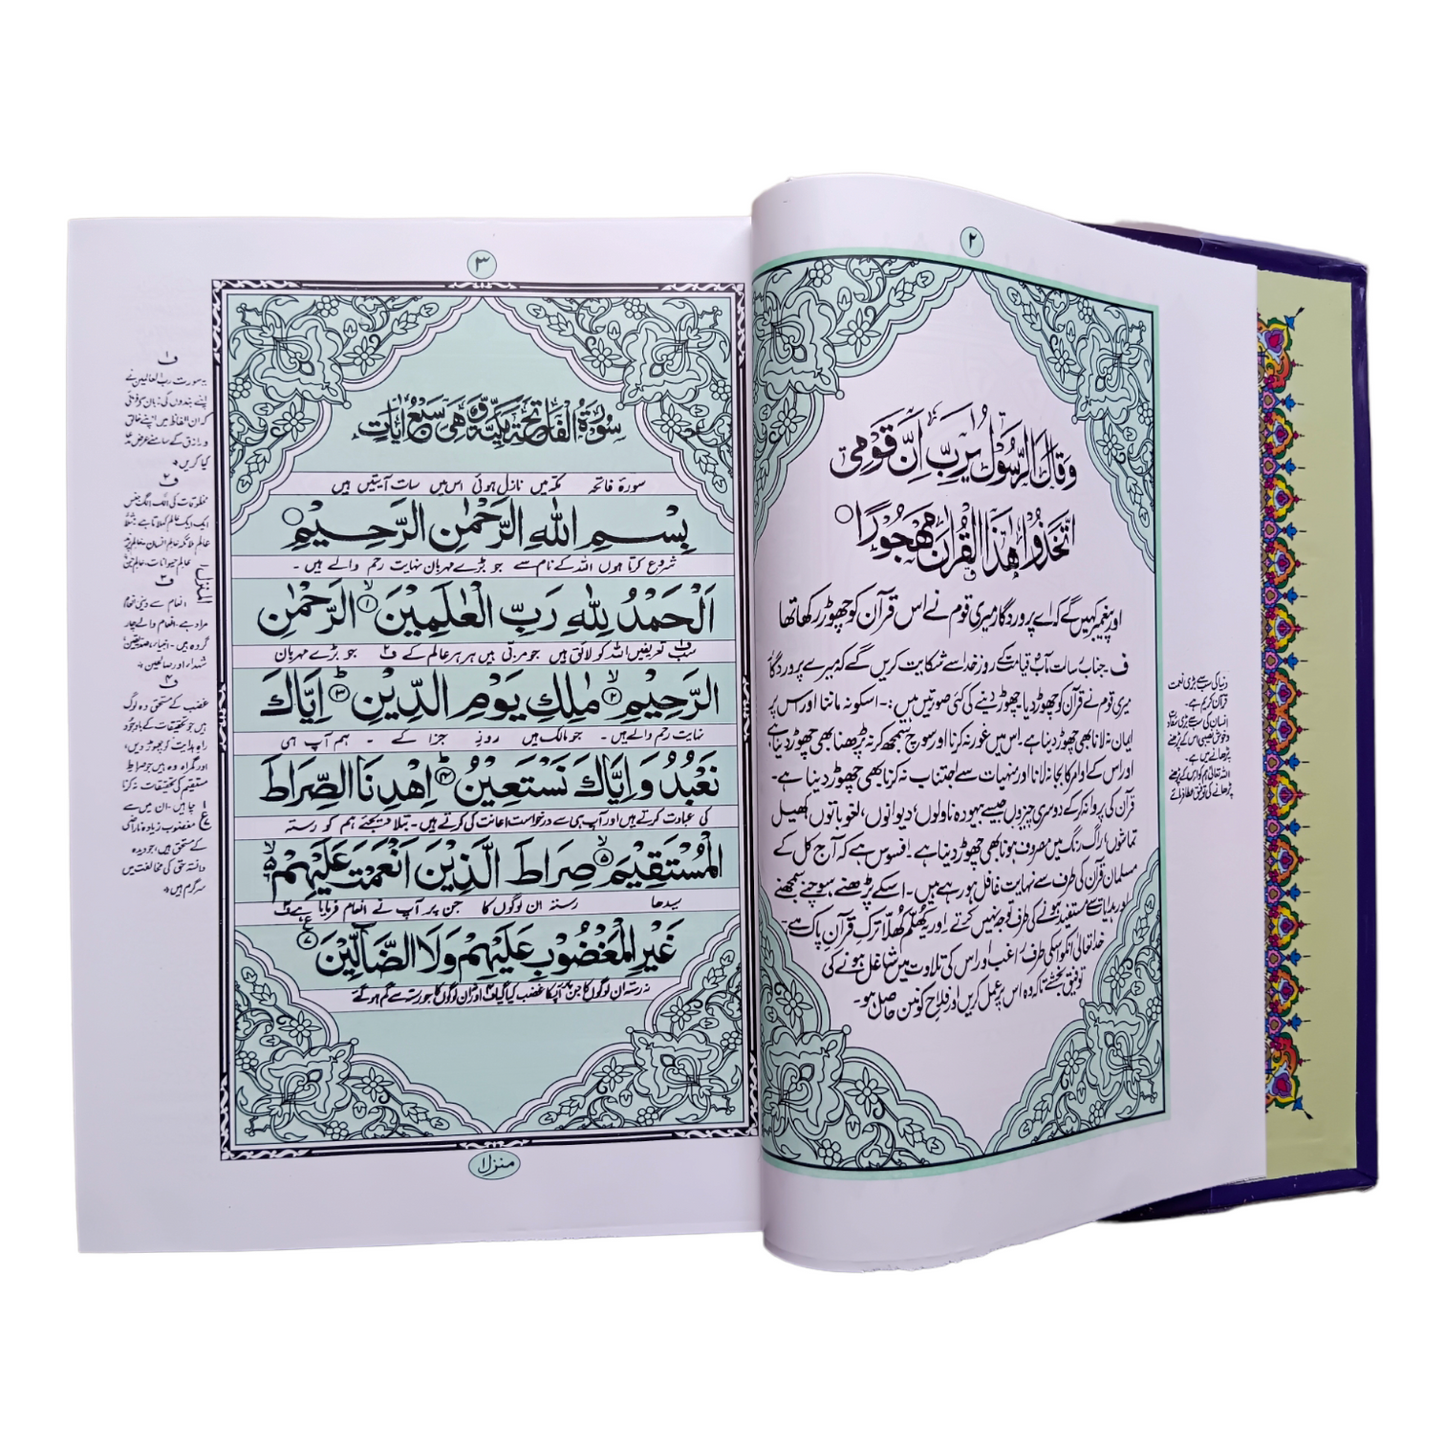 ۲
وَقَالَ الرَّسُوْلُ يٰرَبِّ اِنَّ قَوْمِی
اتَّخَذُوْا هٰذَا الْقُرْاٰنَ مَهْجُوْرًا
اور پیغمبر کہیں گے کہ اے پروردگار میری قوم نے اس قرآن کو چھوڑ رکھا تھا
ف جناب رسالت مآب قیامت کے روز خدا سے شکایت کریں گے کہ میرے پروردگار
میری قوم نے قرآن کو چھوڑ دیا، چھوڑ دینے کی کئی صورتیں ہیں :۔ اسکو نہ ماننا اور اس پر
ایمان نہ لانا بھی چھوڑ دینا ہے۔ اس میں غور نہ کرنا اور سوچ سمجھ کر نہ پڑھنا بھی چھوڑ دینا ہے،
اور اس کے اوامر کا بجا نہ لانا اور منہیات سے اجتناب نہ کرنا بھی چھوڑ دینا ہے۔
قرآن کی پروا نہ کر کے دوسری چیزوں جیسے بیہودہ ناولوں، دیوانوں، لغو باتوں کھیل
تماشوں، راگ رنگ میں مصروف ہونا بھی چھوڑ دینا ہے۔ افسوس ہے کہ آج کل کے
مسلمان قرآن کی طرف سے نہایت غافل ہو رہے ہیں۔ اسکے پڑھنے سوچنے سمجھنے
اور ہدایات سے مستفید ہونے کی طرف توجہ نہیں کرتے اور کھلم کھلا ترک قرآن پاک ہے۔
خدا تعالیٰ انکو اسکی طرف راغب اور اس کی تلاوت میں شاغل ہونے کی
توفیق بخشے تاکہ وہ اس پر عمل کریں اور فلاح کونین حاصل ہو۔
دنیا کی سب سے بڑی نعمت
قرآن کریم ہے۔
انسان کی سب سے بڑی سعادت
وخوش نصیبی اس کے پڑھنے
پڑھانے میں ہے۔
اللہ تعالیٰ ہم کو اس کے پڑھنے
پڑھانے کی توفیق عطا فرمائے
۳
سُوْرَةُ الْفَاتِحَةِ مَكِّيَّةٌ وَّهِیَ سَبْعُ اٰيَاتٍ
سورۂ فاتحہ مکہ میں نازل ہوئی اس میں سات آیتیں ہیں
بِسْمِ اللّٰهِ الرَّحْمٰنِ الرَّحِيْمِ
شروع کرتا ہوں اللہ کے نام سے جو بڑے مہربان نہایت رحم والے ہیں۔
اَلْحَمْدُ لِلّٰهِ رَبِّ الْعٰلَمِيْنَ ۱ الرَّحْمٰنِ
سب تعریفیں اللہ کو لائق ہیں جو مربی ہیں ہر ہر عالم کے ف۲ جو بڑے مہربان
الرَّحِيْمِ ۲ مٰلِكِ يَوْمِ الدِّيْنِ ۳ اِيَّاكَ
نہایت رحم والے ہیں۔ جو مالک ہیں روزِ جزا کے ۔ ہم آپ ہی
نَعْبُدُ وَاِيَّاكَ نَسْتَعِيْنُ ۴ اِهْدِنَا الصِّرَاطَ
کی عبادت کرتے ہیں اور آپ ہی سے درخواست اعانت کی کرتے ہیں۔ بتلا دیجئے ہم کو رستہ
الْمُسْتَقِيْمَ ۵ صِرَاطَ الَّذِيْنَ اَنْعَمْتَ عَلَيْهِمْ ۶
سیدھا رستہ ان لوگوں کا جن پر آپ نے انعام فرمایا ہے
غَيْرِ الْمَغْضُوْبِ عَلَيْهِمْ وَلَا الضَّآلِّيْنَ ۷
نہ رستہ ان لوگوں کا جن پر آپکا غضب کیا گیا اور نہ ان لوگوں کا جو رستہ سے گم ہو گئے
منزل ۱
ف۱
یہ سورت رب العالمین نے
اپنے بندوں کی زبان سے فرمائی
کہ ان الفاظ میں اپنے خالق
و رازق کے سامنے عرض مدعا
کیا کریں
ف۲
مخلوقات کی الگ الگ جنس
ایک ایک عالم کہلاتا ہے مثلاً
عالم ملائکہ عالم انسان
عالم حیوانات عالم جن
ف۳
انعام سے دینی انعام
مراد ہے۔ انعام والے چار
گروہ ہیں۔ انبیاء، صدیقین
شہداء اور صالحین
ف۴
غضب کے مستحق وہ لوگ
ہیں جو تحقیقات کے باوجود
راہ ہدایت کو چھوڑ دیں،
اور گمراہ وہ ہیں جو صراط
مستقیم کی تحقیقات نہ کرنا
چاہیں۔ ان میں سے
مغضوب زیادہ ناراضی
کے مستحق ہیں، جو دیدہ
دانستہ حق کی مخالفت میں
سرگرم ہیں